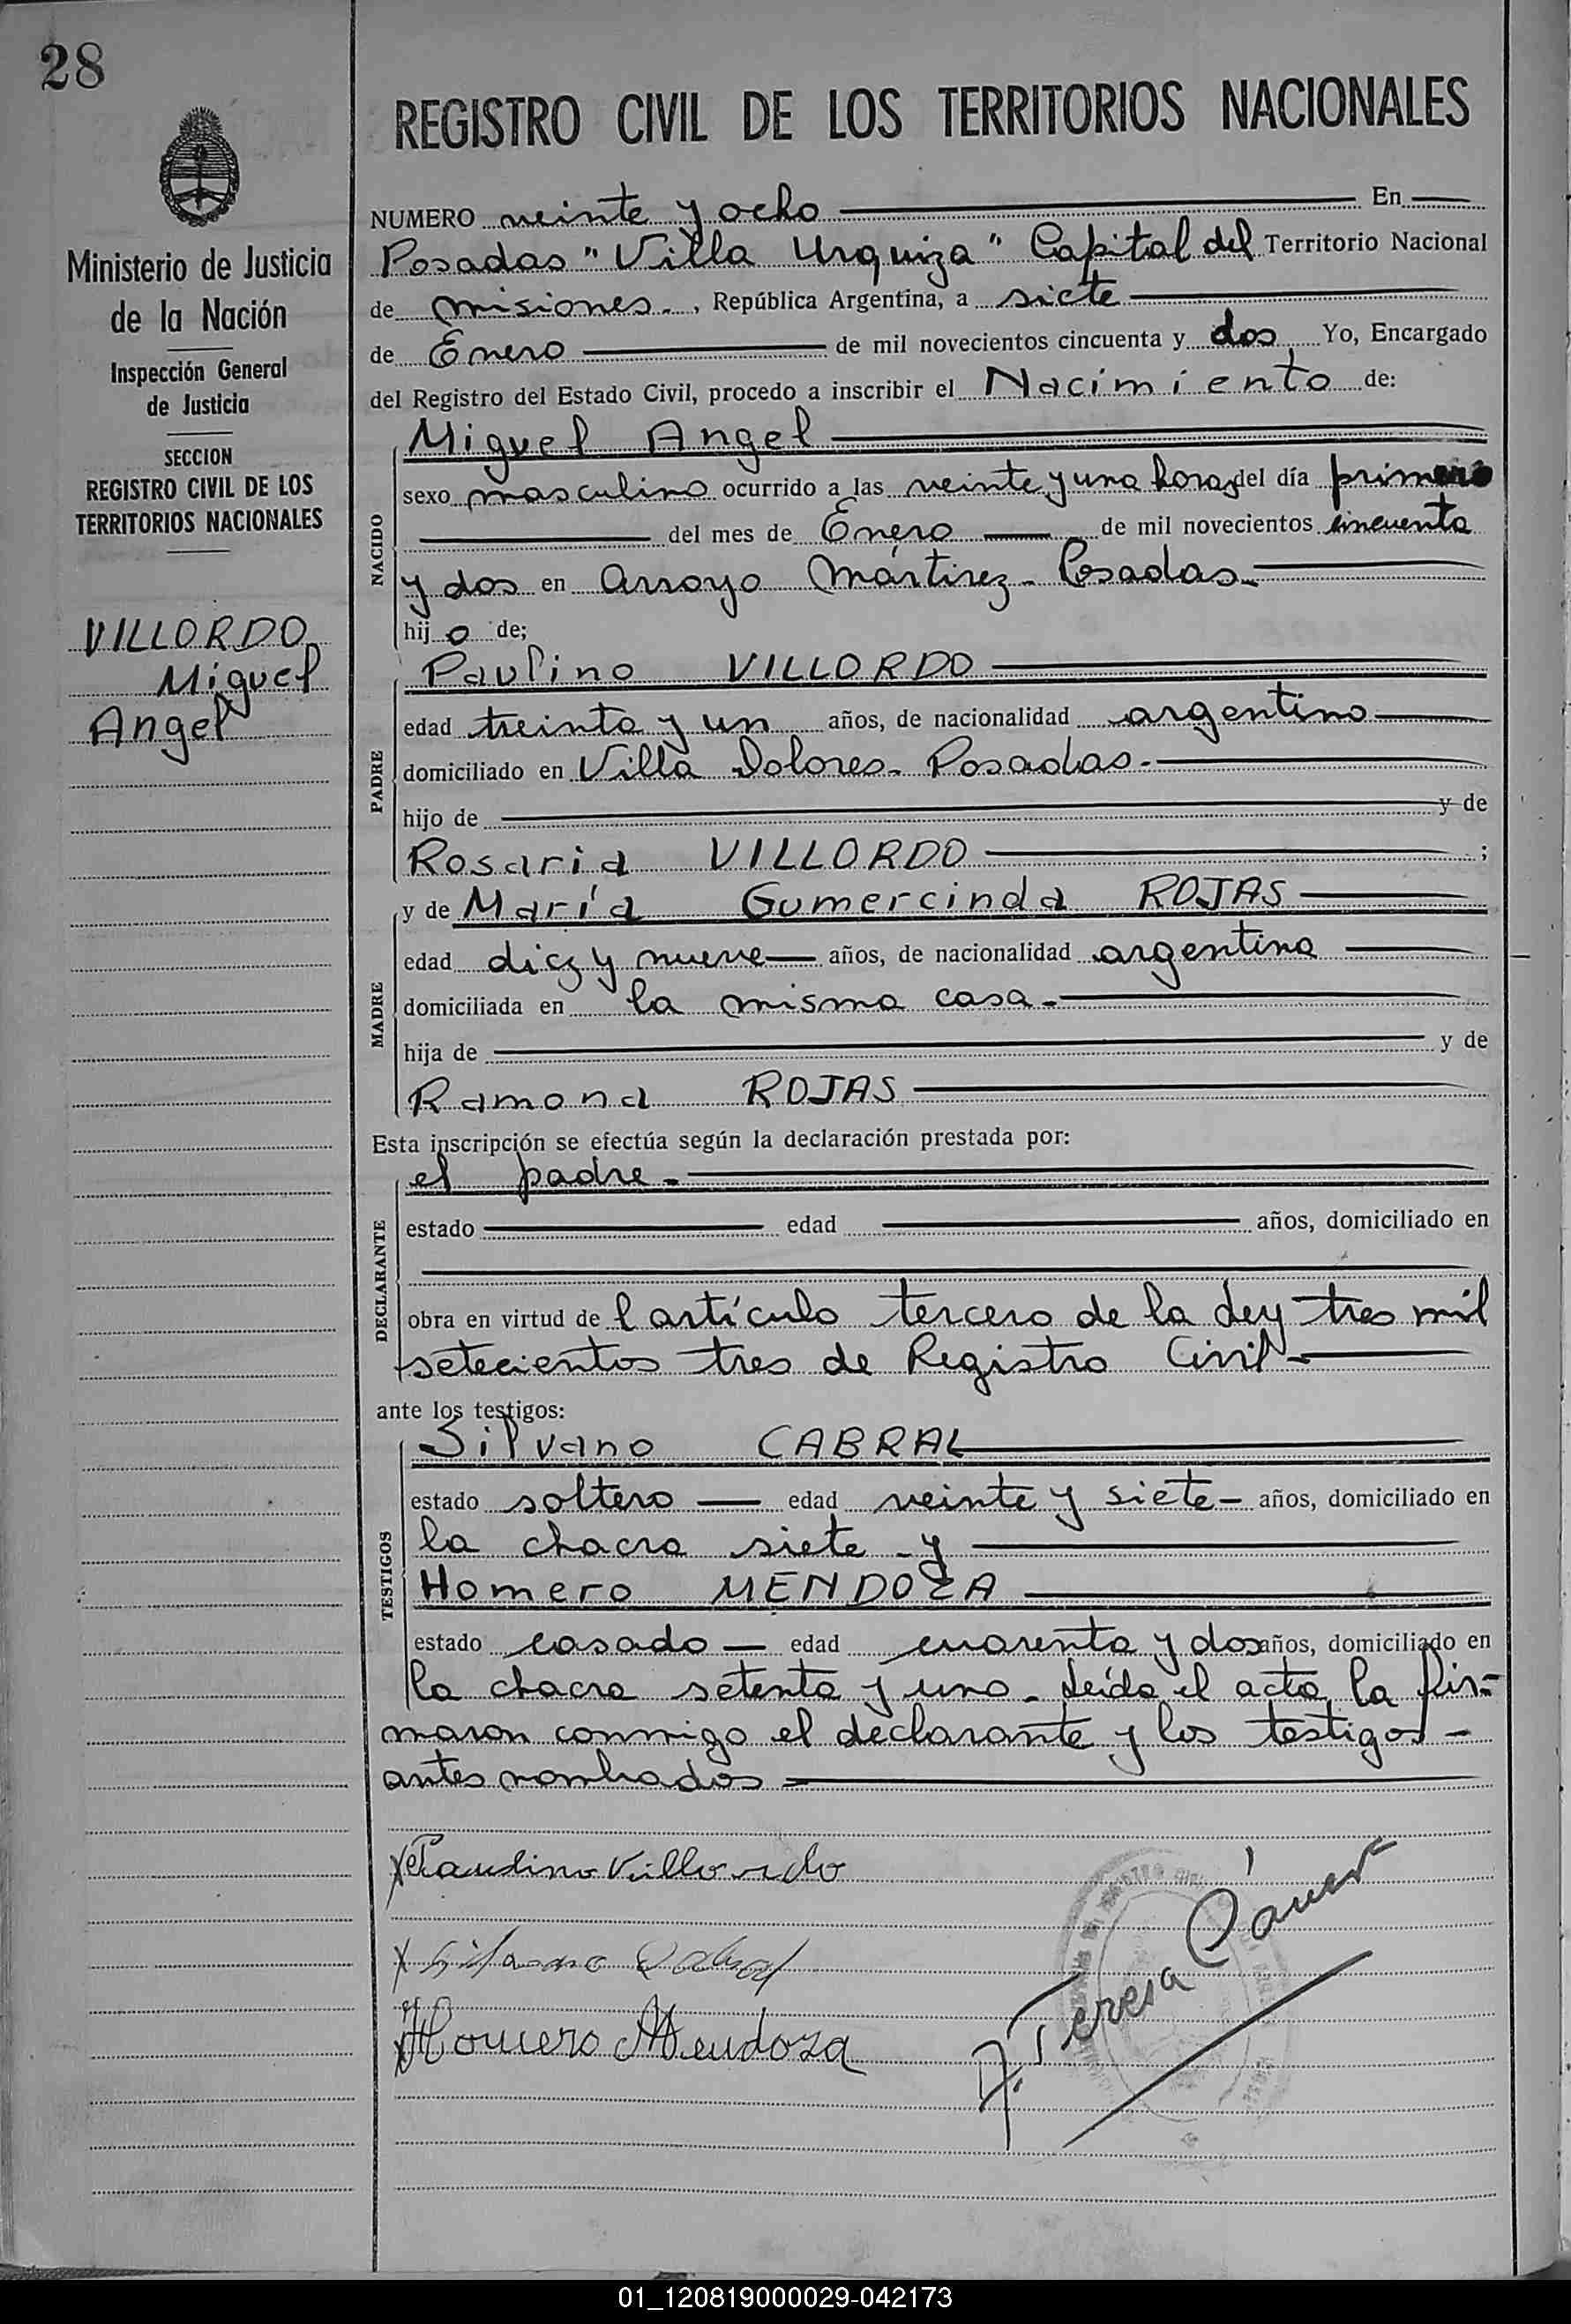 28
REGISTRO CIVIL DE LOS TERRITORIOS NACIONALES
Ministerio de Justicia
de la Nación
Inspección General
de Justicia
SECCION
REGISTRO CIVIL DE LOS
TERRITORIOS NACIONALES
VILLORDO
Miguel
Angel
NUMERO veinte y ocho En
Posadas "Villa Urquiza" Capital del Territorio Nacional
de misiones., República Argentina, a siete
de Enero de mil novecientos cincuenta y dos Yo, Encargado
del Registro del Estado Civil, procedo a inscribir el Nacimiento de:
NACIDO
Miguel Angel
sexo masculino ocurrido a las veinte y una horas del día primero
del mes de Enero de mil novecientos cincuenta
y dos en Arroyo Mártirez - Posadas-
hijo de;
PADRE
Paulino VILLORDO
edad treinta y un años, de nacionalidad argentino
domiciliado en Villa Dolores - Posadas.-
hijo de y de
Rosaria VILLORDO ;
MADRE
y de María Gumercinda ROJAS
edad diez y nueve años, de nacionalidad argentina
domiciliada en la misma casa-
hija de y de
Ramona ROJAS
Esta inscripción se efectúa según la declaración prestada por:
DECLARANTE
el padre-
estado edad años, domiciliado en
obra en virtud del artículo tercero de la Ley tres mil
setecientos tres de Registro Civil-
ante los testigos:
TESTIGOS
Silvano CABRAL
estado soltero edad veinte y siete- años, domiciliado en
la chacra siete - y
Homero MENDOZA
estado casado edad cuarenta y dos años, domiciliado en
la chacra setenta y uno - Leída el acta, la fir=
maron conmigo el declarante y los testigos-
antes nombrados=
Paulino Villordo
Silvano Cabral
Homero Mendoza
A. Teresa
01_120819000029-042173